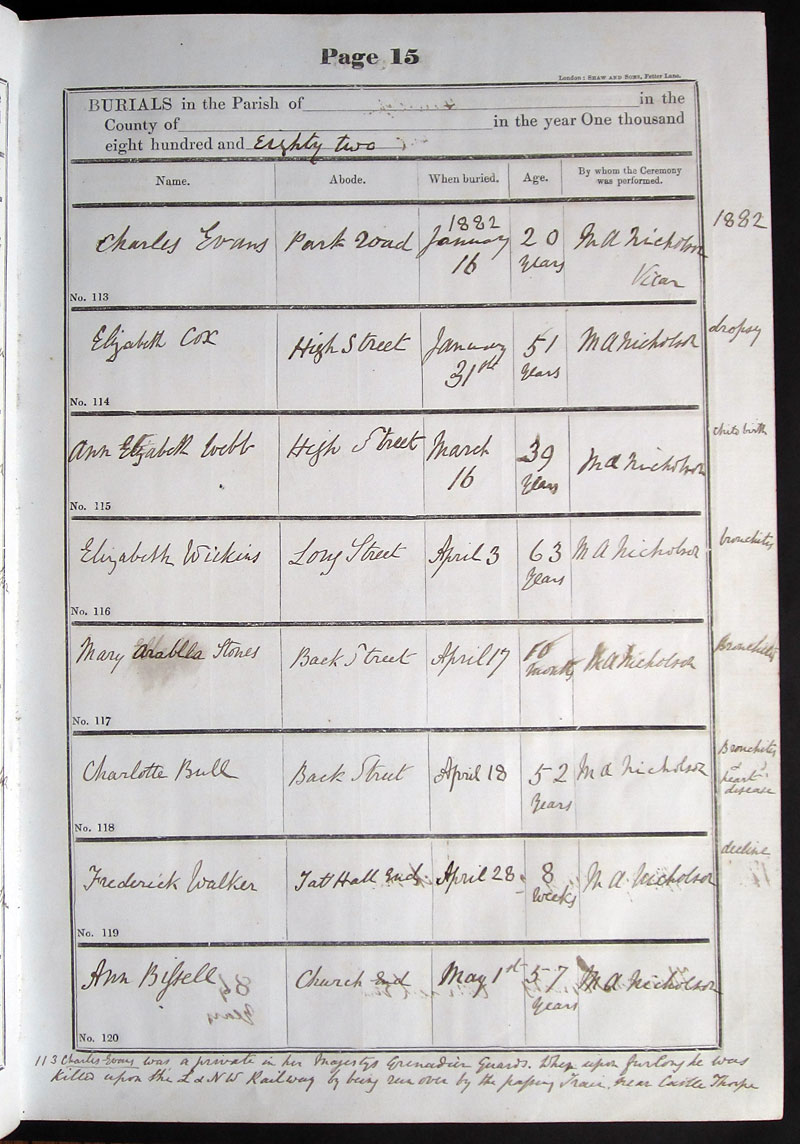 Page 15
London: SHAW AND SONS, Fetter Lane.
BURIALS in the Parish of in the
County of in the year One thousand
eight hundred and Eighty two
Name. Abode. When buried. Age. By whom the Ceremony was performed.
1882
Charles Evans Park Road 1882 January 16 20 years M A Nicholson Vicar
No. 113
dropsy
Elizabeth Cox High Street January 31st 51 years M A Nicholson
No. 114
Ann Elizabeth Webb High Street March 16 39 years M A Nicholson
No. 115
bronchitis
Elizabeth Wickins Long Street April 3 63 years M A Nicholson
No. 116
Bronchitis
Mary Arabella Stones Back Street April 17 months M A Nicholson
No. 117
Bronchitis & heart disease
Charlotte Bull Back Street April 18 52 years M A Nicholson
No. 118
decline
Frederick Walker Tatt Hall End April 28 8 weeks M A Nicholson
No. 119
Ann Bissell Church End May 1st 57 years M A Nicholson
No. 120
113 Charles Evans was a private in her Majestys Grenadier Guards. When upon furlong he was
killed upon the L & NW Railway by being run over by the passing Train, near Castle Thorpe